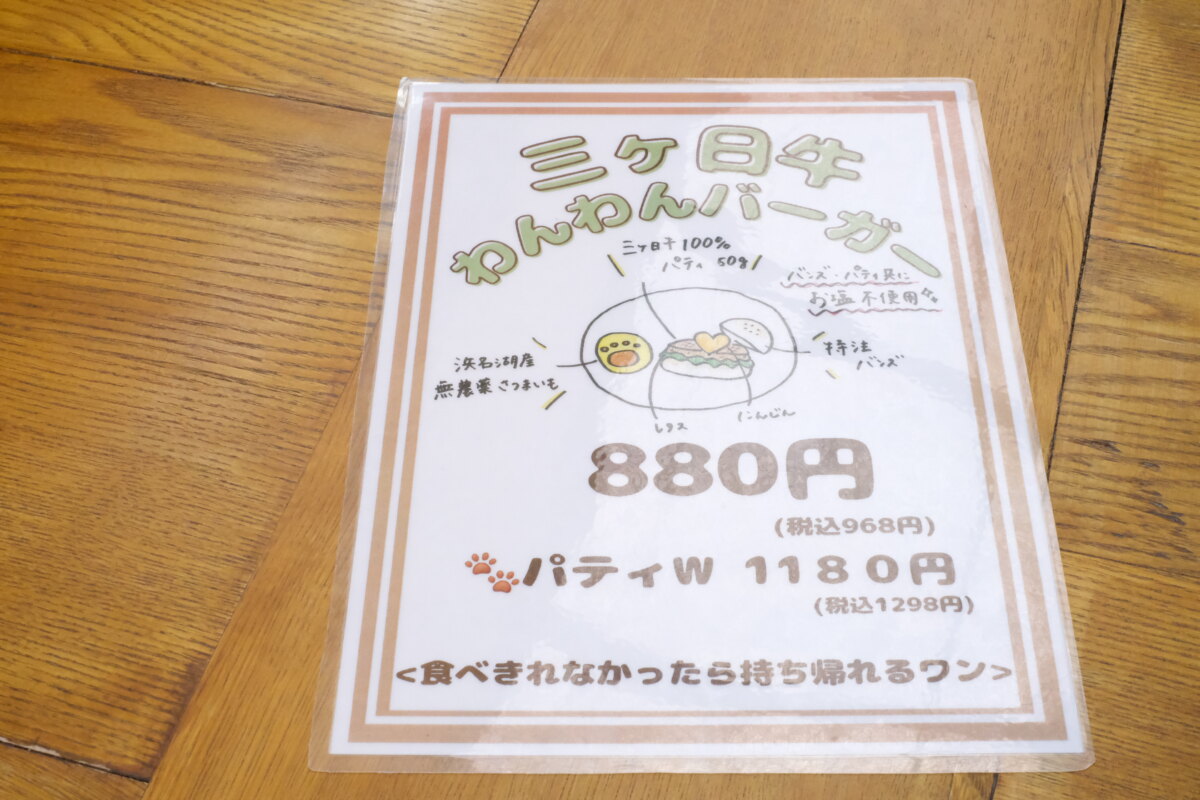 三ケ日牛
わんわんバーガー
三ケ日牛100%
パティ 50g
バンズ・パティ共に
お塩不使用
浜名湖産
無農薬さつまいも
特注
バンズ
レタス
にんじん
880円
(税込968円)
パティW 1180円
(税込1298円)
<食べきれなかったら持ち帰れるワン>